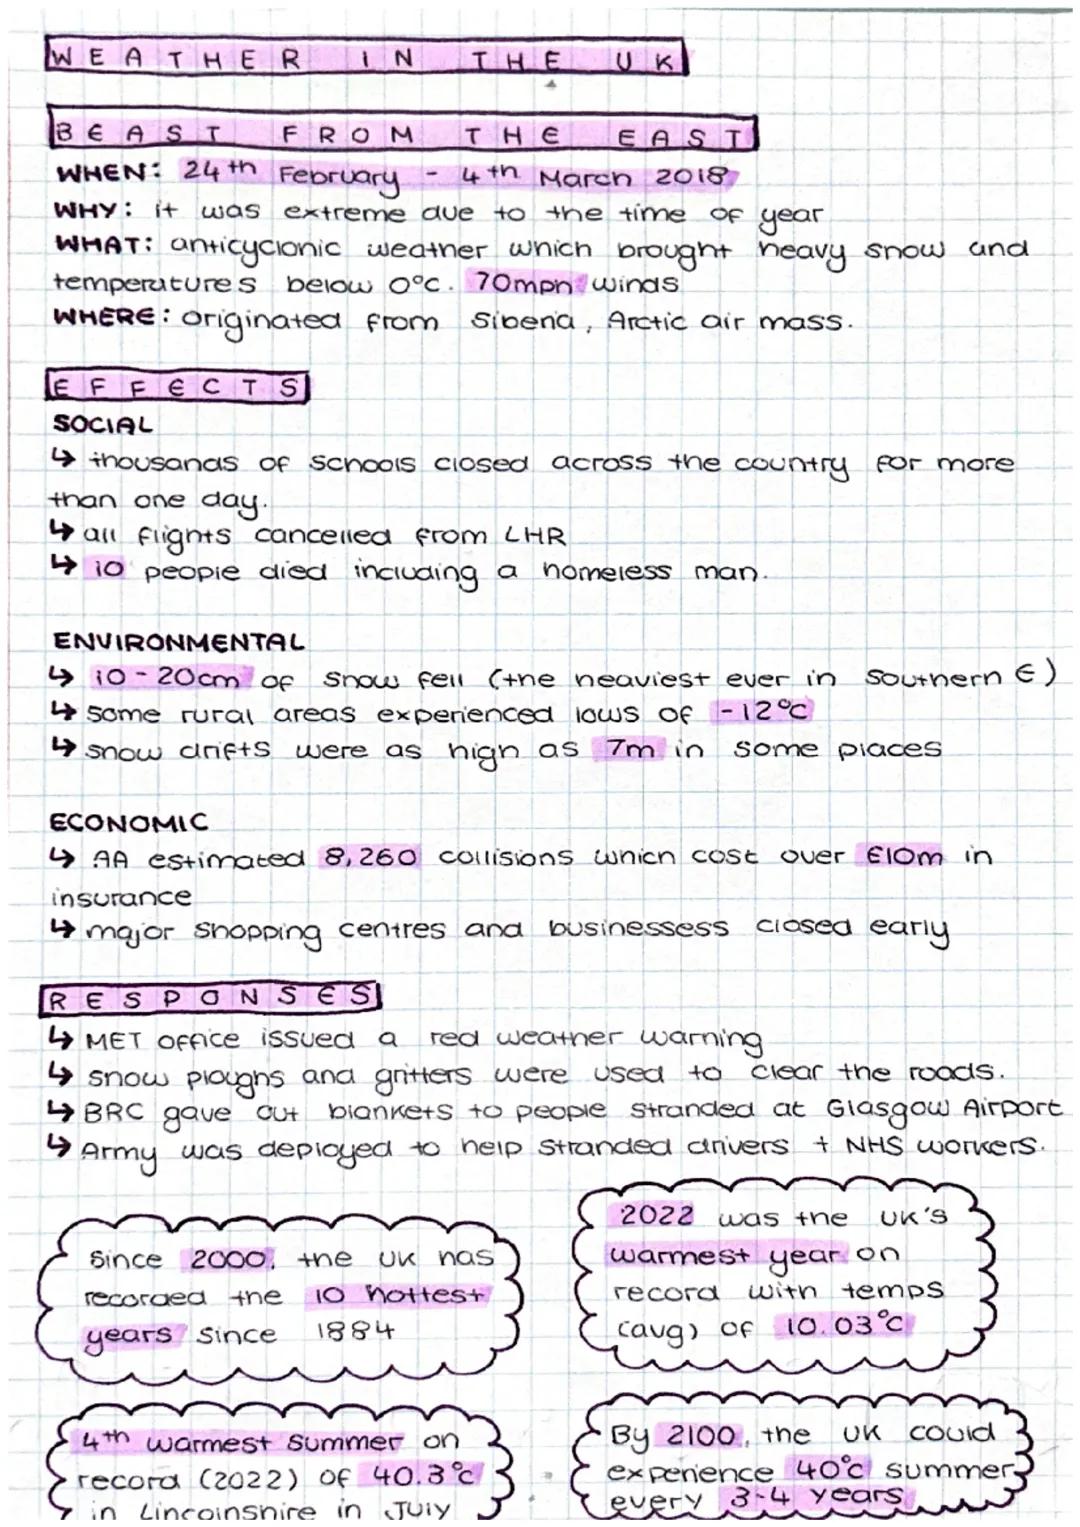 WEATHER IN THE UK
BEAST FROM THE EAST
WHEN: 24th February - 4th March 2018
WHY: it was extreme due to the time of year
WHAT: anticyclonic weather which brought heavy snow and
temperatures below 0°C. 70mph winds
WHERE: originated from Siberia, Arctic air mass.
EFFECTS
SOCIAL
↳ thousands of schools closed across the country for more
than one day.
↳ all flights cancelled from LHR
↳ 10 people died including a homeless man.
ENVIRONMENTAL
↳ 10-20cm of snow fell (the heaviest ever in southern E)
↳ some rural areas experienced lows of -12°C
↳ snow drifts were as high as 7m in some places
ECONOMIC
↳ AA estimated 8,260 collisions which cost over £10m in
insurance
↳ major shopping centres and businessess closed early
RESPONSES
↳ MET office issued a red weather warning
↳ snow ploughs and gritters were used to clear the roads.
↳ BRC gave out blankets to people stranded at Glasgow Airport
↳ Army was deployed to help stranded drivers + NHS workers.
Since 2000, the UK has
recorded the 10 hottest
years since 1884
2022 was the UK's
warmest year on
record with temps
(avg) of 10.03°C
4th warmest summer on
record (2022) of 40.3°C
in Lincolnshire in July
By 2100, the UK could
experience 40°C summers
every 3-4 years